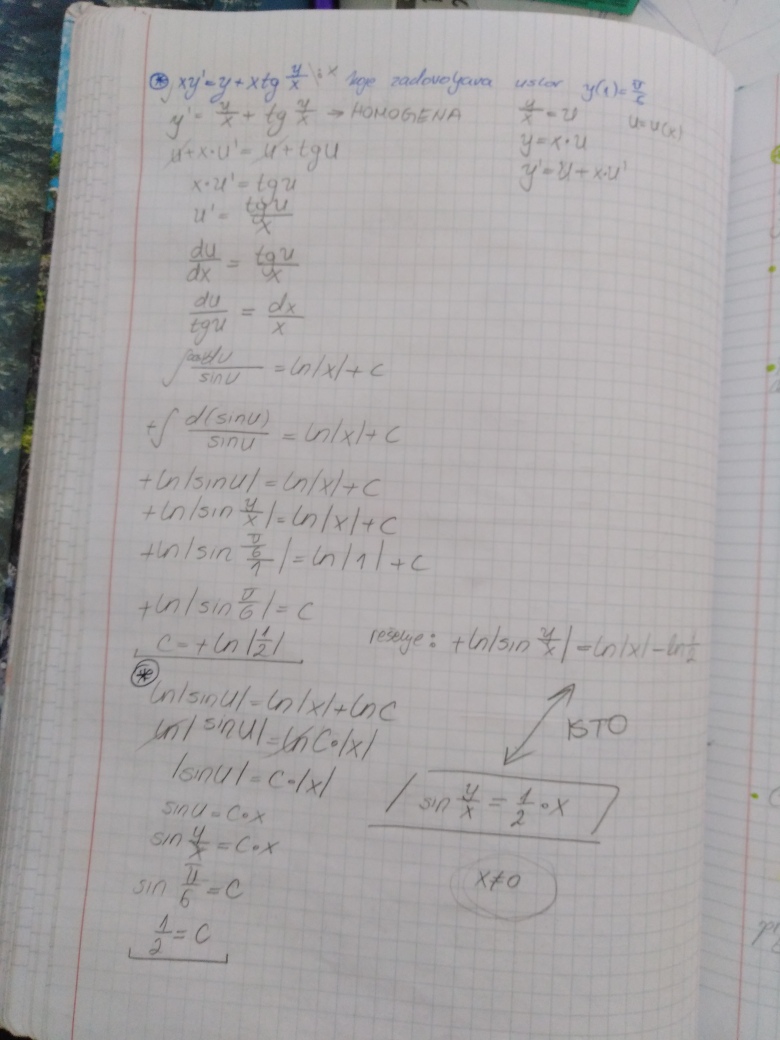 * xy' = y + x tg y/x |:x koje zadovoljava uslov y(1) = π/6
y' = y/x + tg y/x → HOMOGENA
y/x = u
u = u(x)
y = x·u
y' = u + x·u'
u + x·u' = u + tgu
x·u' = tgu
u' = tgu/x
du/dx = tgu/x
du/tgu = dx/x
∫ cosu du/sinu = ln|x| + C
+∫ d(sinu)/sinu = ln|x| + C
+ln|sinu| = ln|x| + C
+ln|sin y/x| = ln|x| + C
+ln|sin (π/6)/1| = ln|1| + C
+ln|sin π/6| = C
C = +ln|1/2|
rešenje: +ln|sin y/x| = ln|x| - ln 1/2
*
ln|sinu| = ln|x| + lnC
ln|sinu| = lnC·|x|
ISTO
|sinu| = C·|x|
sinu = C·x
sin y/x = 1/2 · x
sin y/x = C·x
sin π/6 = C
x ≠ 0
1/2 = C